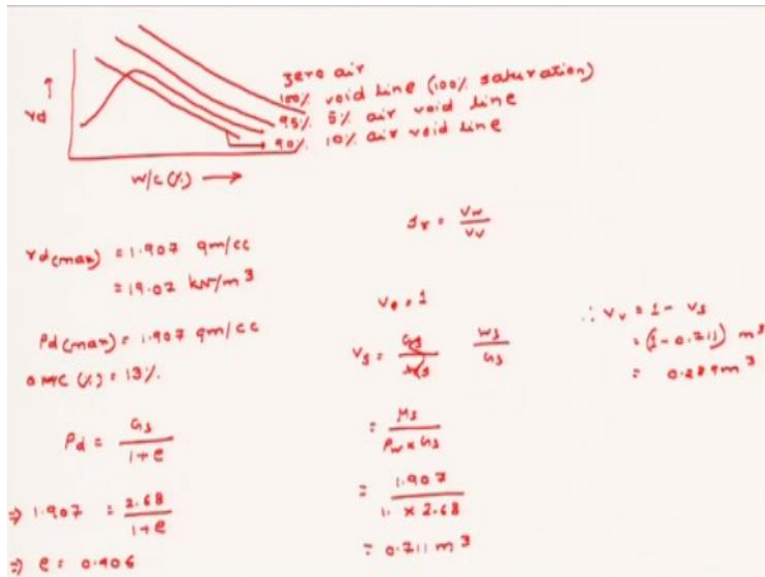 γd
W/C (%) →
zero air
100% void line (100% saturation)
95% 5% air void line
90% 10% air void line
γd(max) = 1.907 gm/cc
= 19.07 kN/m³
ρd(max) = 1.907 gm/cc
OMC (%) = 13%.
ρd = Gs / 1+e
⇒ 1.907 = 2.68 / 1+e
⇒ e = 0.406
Sr = Vw / Vv
Ve = 1
Vs = Ws / Gs
= Ms / ρw × Gs
= 1.907 / 1. × 2.68
= 0.711 m³
∴ Vv = 1 - Vs
= (1 - 0.711) m³
= 0.289 m³